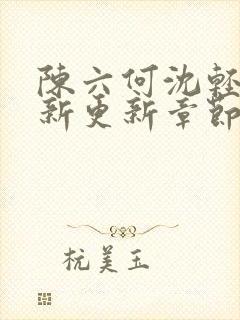 陳六何沈輕
新更新章節
杭美玉